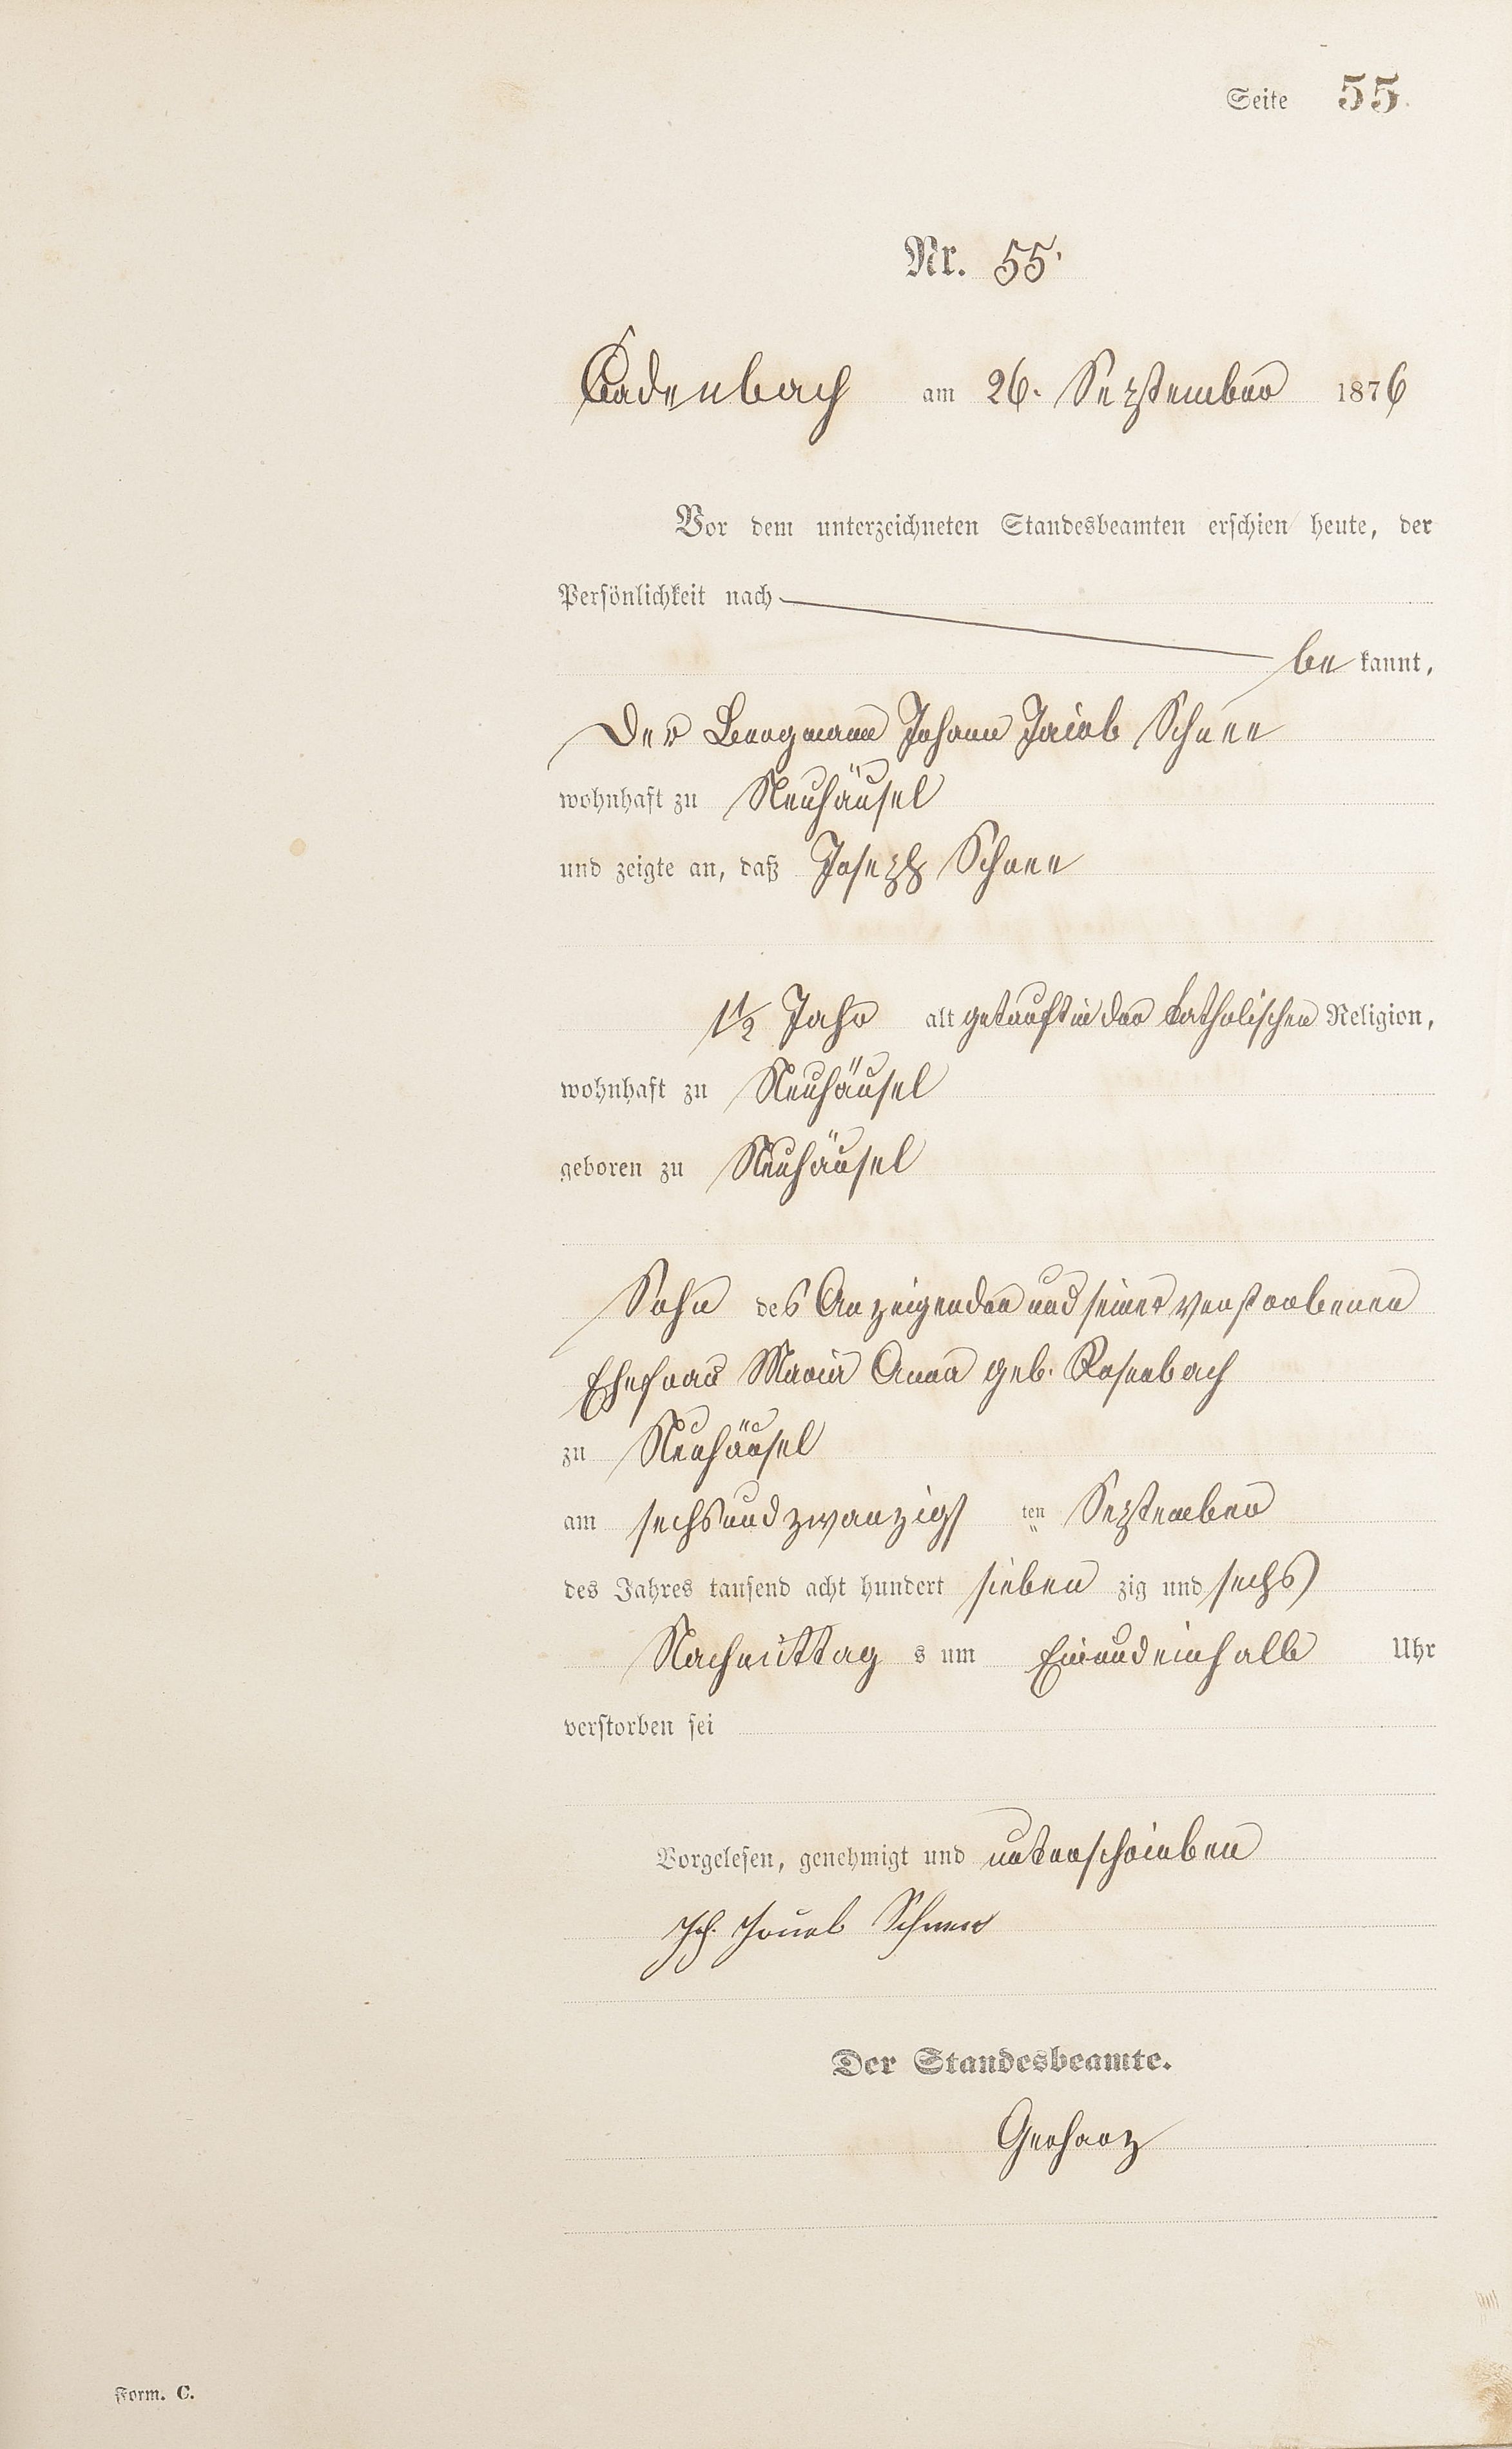 Seite 55.
Nr. 55.
Cadenbach am 26. September 1876
Vor dem unterzeichneten Standesbeamten erschien heute, der
Persönlichkeit nach
be kannt,
Der Bergmann Johann Jacob Schnee
wohnhaft zu Neuhäusel
und zeigte an, daß Joseph Schnee
1 1/2 Jahr alt getauft in der katholischen Religion,
wohnhaft zu Neuhäusel
geboren zu Neuhäusel
Sohn des Anzeigenden und seiner verstorbenen
Ehefrau Maria Anna geb. Rosenbach
zu Neuhäusel
am sechsundzwanzigs ten September
des Jahres tausend acht hundert sieben zig und sechs
Nachmittag s um Einundeinhalb Uhr
verstorben sei
Vorgelesen, genehmigt und unterschrieben
Joh. Jacob Schnee
Der Standesbeamte.
Gerharz
Form. C.